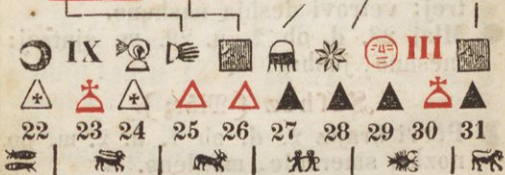 IX III
22 23 24 25 26 27 28 29 30 31